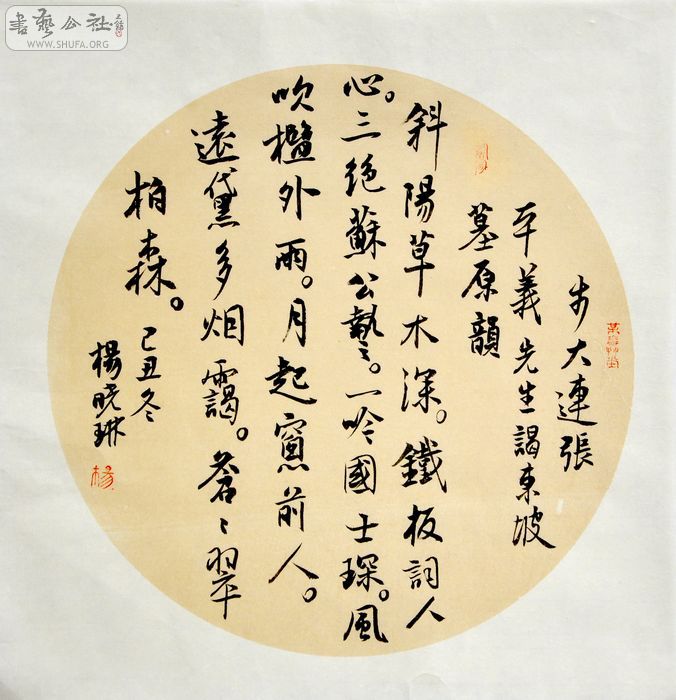 書藝公社
WWW.SHUFA.ORG
步大連張
平義先生謁東坡
墓原韻
斜陽草木深。鐵板詞人
心。三絕蘇公藝。一吟國士琛。風
吹檻外雨。月起窗前人。
遠黛多烟靄。蒼〻翠
柏森。
己丑冬
楊曉琳
楊